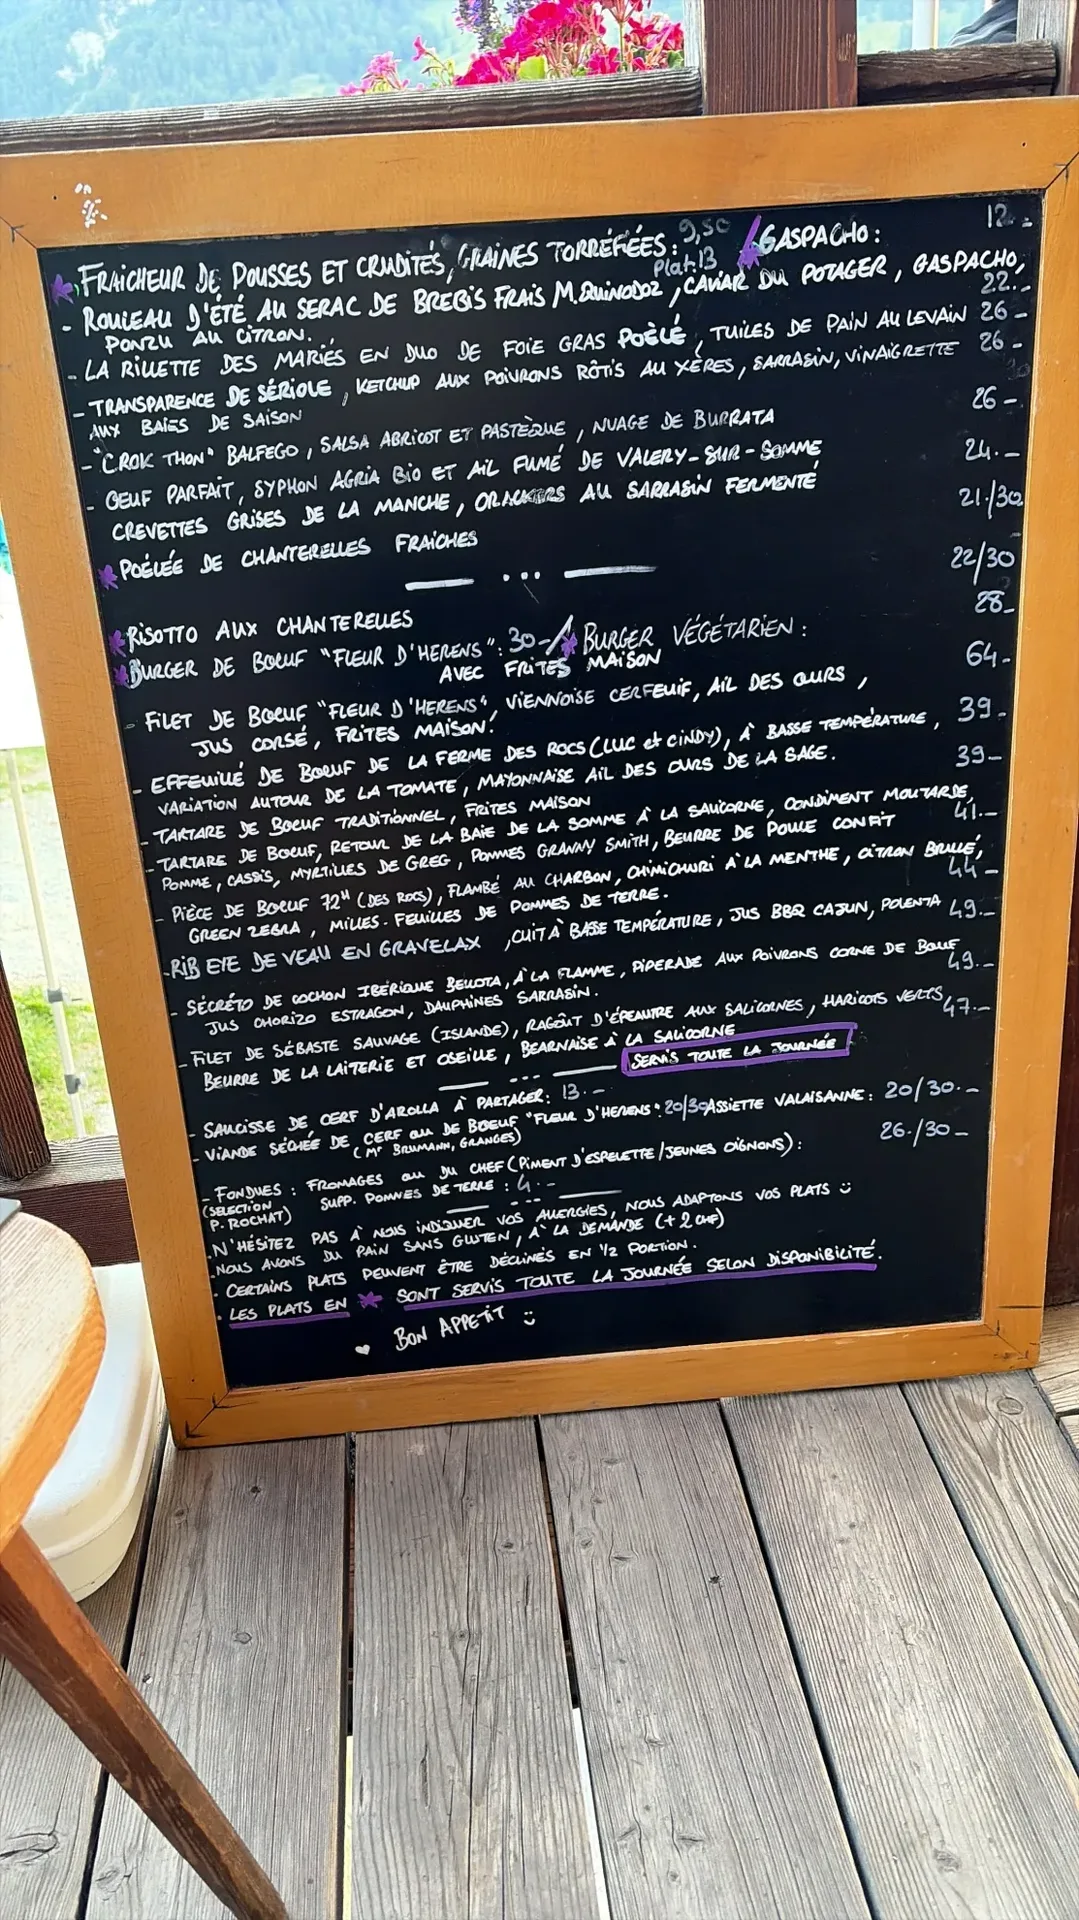 FRAICHEUR DE POUSSES ET CRUDITÉS, GRAINES TORRÉFIÉES : 9,50 / GASPACHO : 12.-
Plat: 13
- ROULEAU D'ÉTÉ AU SERAC DE BREBIS FRAIS M. QUINODOZ, CAVIAR DU POTAGER, GASPACHO,
PONZU AU CITRON. 22.-
- LA RILLETTE DES MARIÉS EN DUO DE FOIE GRAS POÊLÉ, TUILES DE PAIN AU LEVAIN 26-
- TRANSPARENCE DE SÉRIOLE, KETCHUP AUX POIVRONS RÔTIS AU XÉRÈS, SARRASIN, VINAIGRETTE 26-
AUX BAIES DE SAISON
- "CROK THON" BALFEGO, SALSA ABRICOT ET PASTÈQUE, NUAGE DE BURRATA 26-
- OEUF PARFAIT, SYPHON AGRIA BIO ET AIL FUMÉ DE VALERY-SUR-SOMME 24.-
CREVETTES GRISES DE LA MANCHE, CRACKERS AU SARRASIN FERMENTÉ
POÊLÉE DE CHANTERELLES FRAICHES 21./30
- ... -
RISOTTO AUX CHANTERELLES 22/30
BURGER DE BOEUF "FLEUR D'HERENS": 30-/ BURGER VÉGÉTARIEN : 28-
AVEC FRITES MAISON
- FILET DE BOEUF "FLEUR D'HERENS", VIENNOISE CERFEUIL, AIL DES OURS, 64-
JUS CORSÉ, FRITES MAISON!
- EFFEUILLÉ DE BOEUF DE LA FERME DES ROCS (LUC et CINDY), À BASSE TEMPÉRATURE, 39-
VARIATION AUTOUR DE LA TOMATE, MAYONNAISE AIL DES OURS DE LA SAGE.
- TARTARE DE BOEUF TRADITIONNEL, FRITES MAISON 39-
- TARTARE DE BOEUF, RETOUR DE LA BAIE DE LA SOMME À LA SALICORNE, CONDIMENT MOUTARDE,
POMME, CASSIS, MYRTILLES DE GREG, POMMES GRANNY SMITH, BEURRE DE POULE CONFIT 41.-
- PIÈCE DE BOEUF 72H (DES ROCS), FLAMBÉ AU CHARBON, CHIMICHURI À LA MENTHE, CITRON BRULÉ,
GREEN ZEBRA, MILLES-FEUILLES DE POMMES DE TERRE. 44-
- RIB EYE DE VEAU EN GRAVELAX, CUIT À BASSE TEMPÉRATURE, JUS BBQ CAJUN, POLENTA 49.-
- SÉCRÉTO DE COCHON IBÉRIQUE BELLOTA, À LA FLAMME, PIPERADE AUX POIVRONS CORNE DE BOEUF
JUS CHORIZO ESTRAGON, DAUPHINES SARRASIN. 49.-
- FILET DE SÉBASTE SAUVAGE (ISLANDE), RAGOÛT D'ÉPEAUTRE AUX SALICORNES, HARICOTS VERTS, 47.-
BEURRE DE LA LAITERIE ET OSEILLE, BEARNAISE À LA SALICORNE
- ... - SERVIS TOUTE LA JOURNÉE
- SAUCISSE DE CERF D'AROLLA À PARTAGER: 13.-
- VIANDE SÉCHÉE DE CERF ou DE BOEUF "FLEUR D'HERENS": 20/30 ASSIETTE VALAISANNE : 20/30.-
(Mr BRUMANN, GRANGES)
- FONDUES : FROMAGES ou DU CHEF (PIMENT D'ESPELETTE / JEUNES OIGNONS) : 26./30-
(SELECTION P. ROCHAT) SUPP. POMMES DE TERRE : 4.-
- ... -
. N'HÉSITEZ PAS À NOUS INDIQUER VOS ALLERGIES, NOUS ADAPTONS VOS PLATS
. NOUS AVONS DU PAIN SANS GLUTEN, À LA DEMANDE (+2 CHF)
. CERTAINS PLATS PEUVENT ÊTRE DÉCLINÉS EN 1/2 PORTION.
. LES PLATS EN * SONT SERVIS TOUTE LA JOURNÉE SELON DISPONIBILITÉ.
♥ BON APPETIT